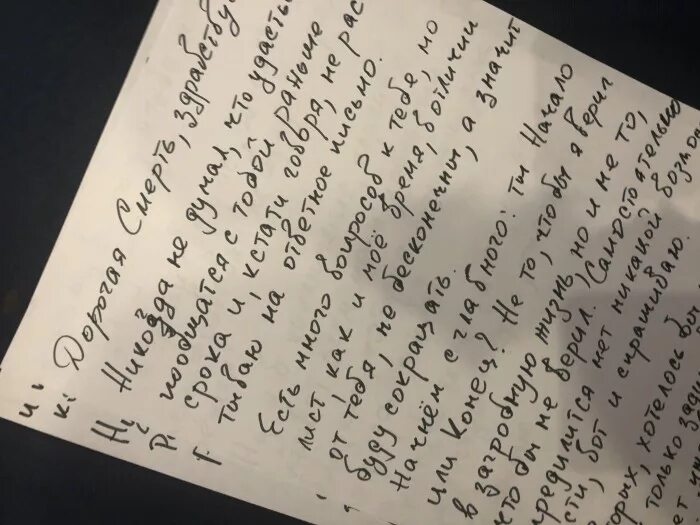 Дорогая Смерть, здравствуй
Никогда не думал, что удасться
пообщатся с тобой раньше
срока и, кстати говоря, не рас
тываю на ответное письмо.
Есть много вопросов к тебе, но
лист, как и моё время, в отличии
от тебя, не бесконечны, а значит
буду сокращать.
Начнём с главного: ты Начало
или Конец? Не то, что бы я верил
в загробную жизнь, но и не то,
что бы не верил. Самостоятельно
редилится нет никакой возмож
сти, вот и спрашиваю.
орых, хотелось бы
только зада